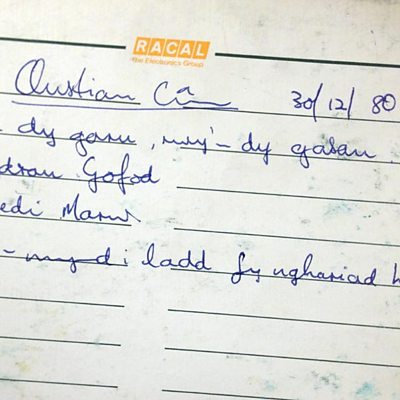 RACAL
the Electronics Group
Clustiau Cŵn 30/12/80
dy garu, rwy'n dy gasau
Gofod
edi Marw
i ladd fy nghariad h